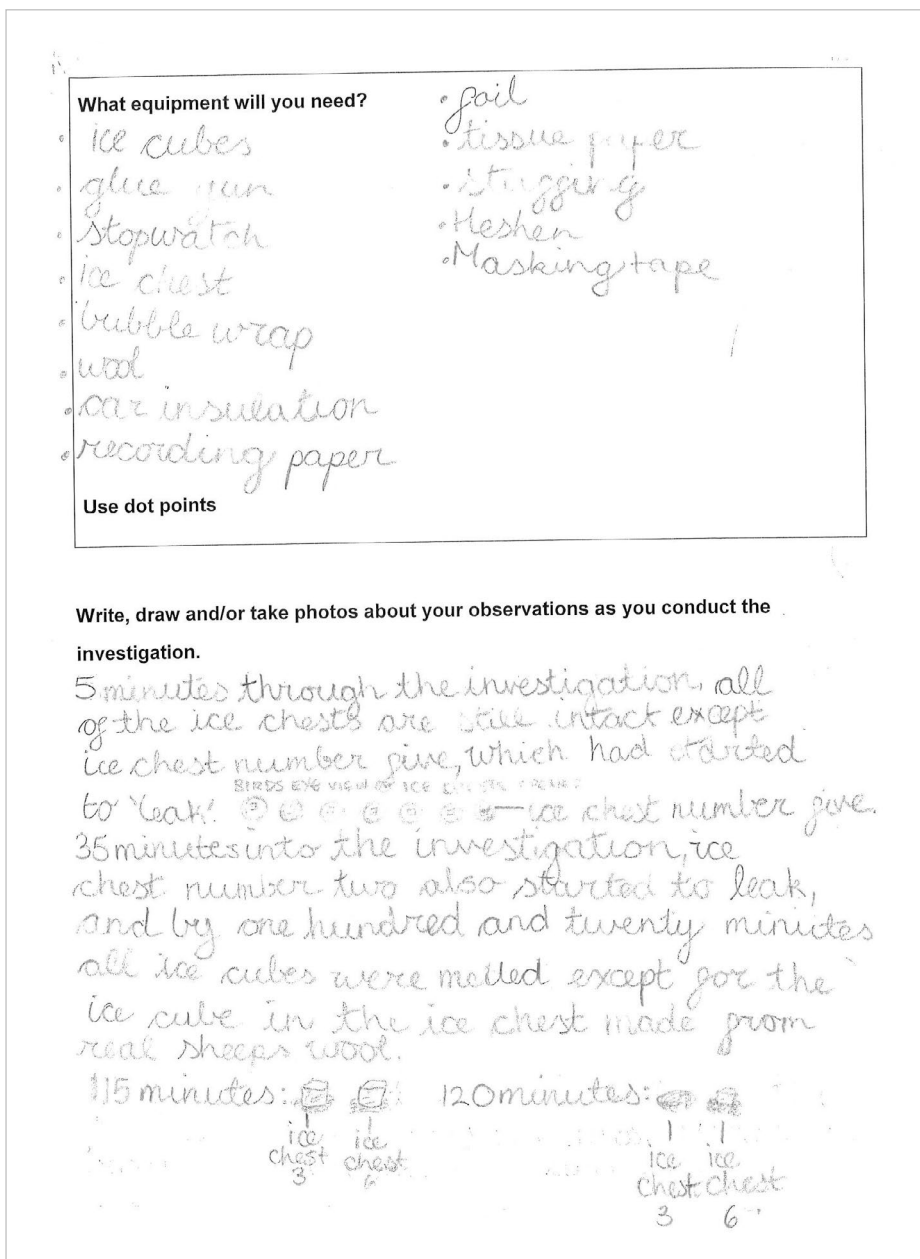 What equipment will you need?
• ice cubes
• glue gun
• stopwatch
• ice chest
• bubble wrap
• wool
• car insulation
• recording paper
• foil
• tissue paper
• stuffing
• Heshen
• Masking tape
Use dot points
Write, draw and/or take photos about your observations as you conduct the
investigation.
5 minutes through the investigation, all
of the ice chests are still intact except
ice chest number five, which had started
to 'leak'.
BIRDS EYE VIEW OF ICE
ice chest number five.
35 minutes into the investigation, ice
chest number two also started to leak,
and by one hundred and twenty minutes
all ice cubes were melled except for the
ice cube in the ice chest made from
real sheeps wool.
115 minutes: 120 minutes:
ice chest 3
ice chest 6
ice chest 3
ice chest 6